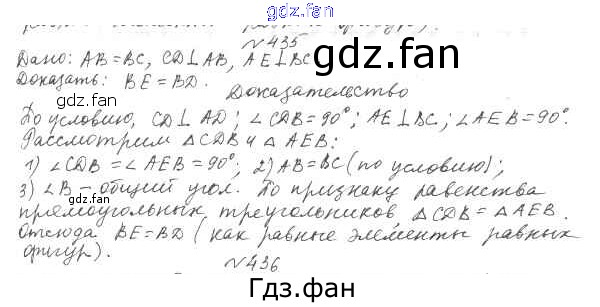 gdz.fan
№435
Дано: AB=BC, CD⊥AB, AE⊥BC
gdz.fan
Доказать: BE=BD.
gdz.fan
Доказательство
По условию, CD⊥AD; ∠CDB=90°; AE⊥BC; ∠AEB=90°.
Рассмотрим △CDB и △AEB:
1) ∠CDB=∠AEB=90°; 2) AB=BC (по условию);
3) ∠B – общий угол. По признаку равенства
прямоугольных треугольников △CDB=△AEB.
Отсюда BE=BD (как равные элементы равных
фигур).
№436
Гдз.фан